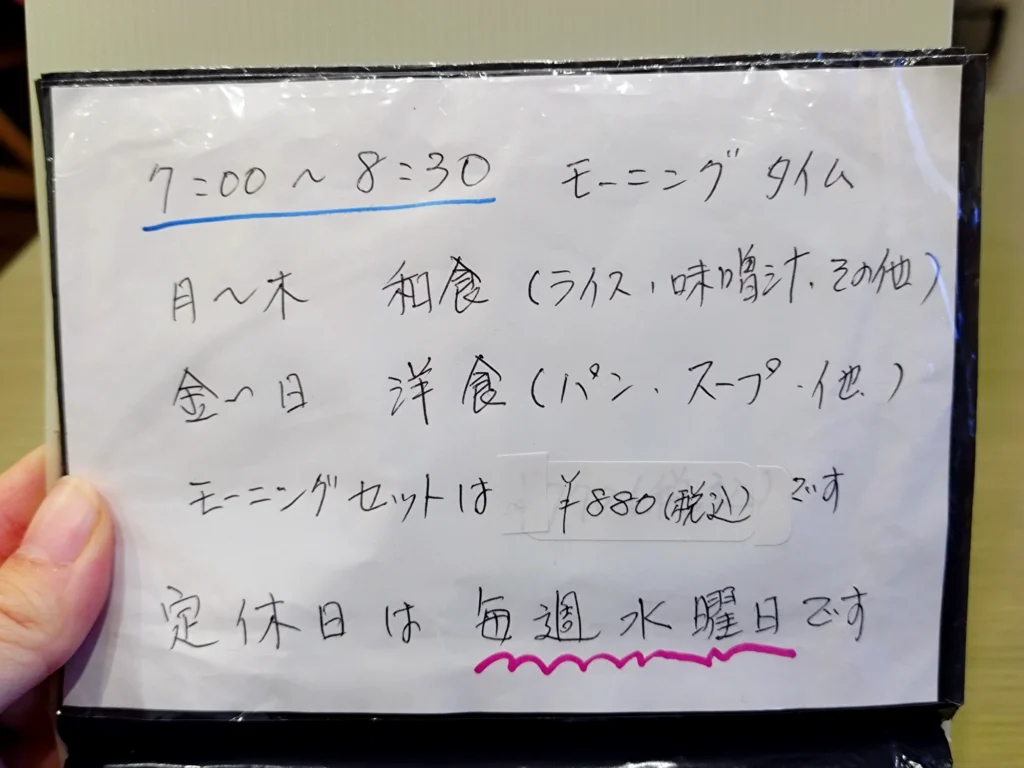 7:00~8:30 モーニングタイム
月~木 和食(ライス、味噌汁、その他)
金~日 洋食(パン・スープ・他)
モーニングセットは ¥880(税込)です
定休日は毎週水曜日です